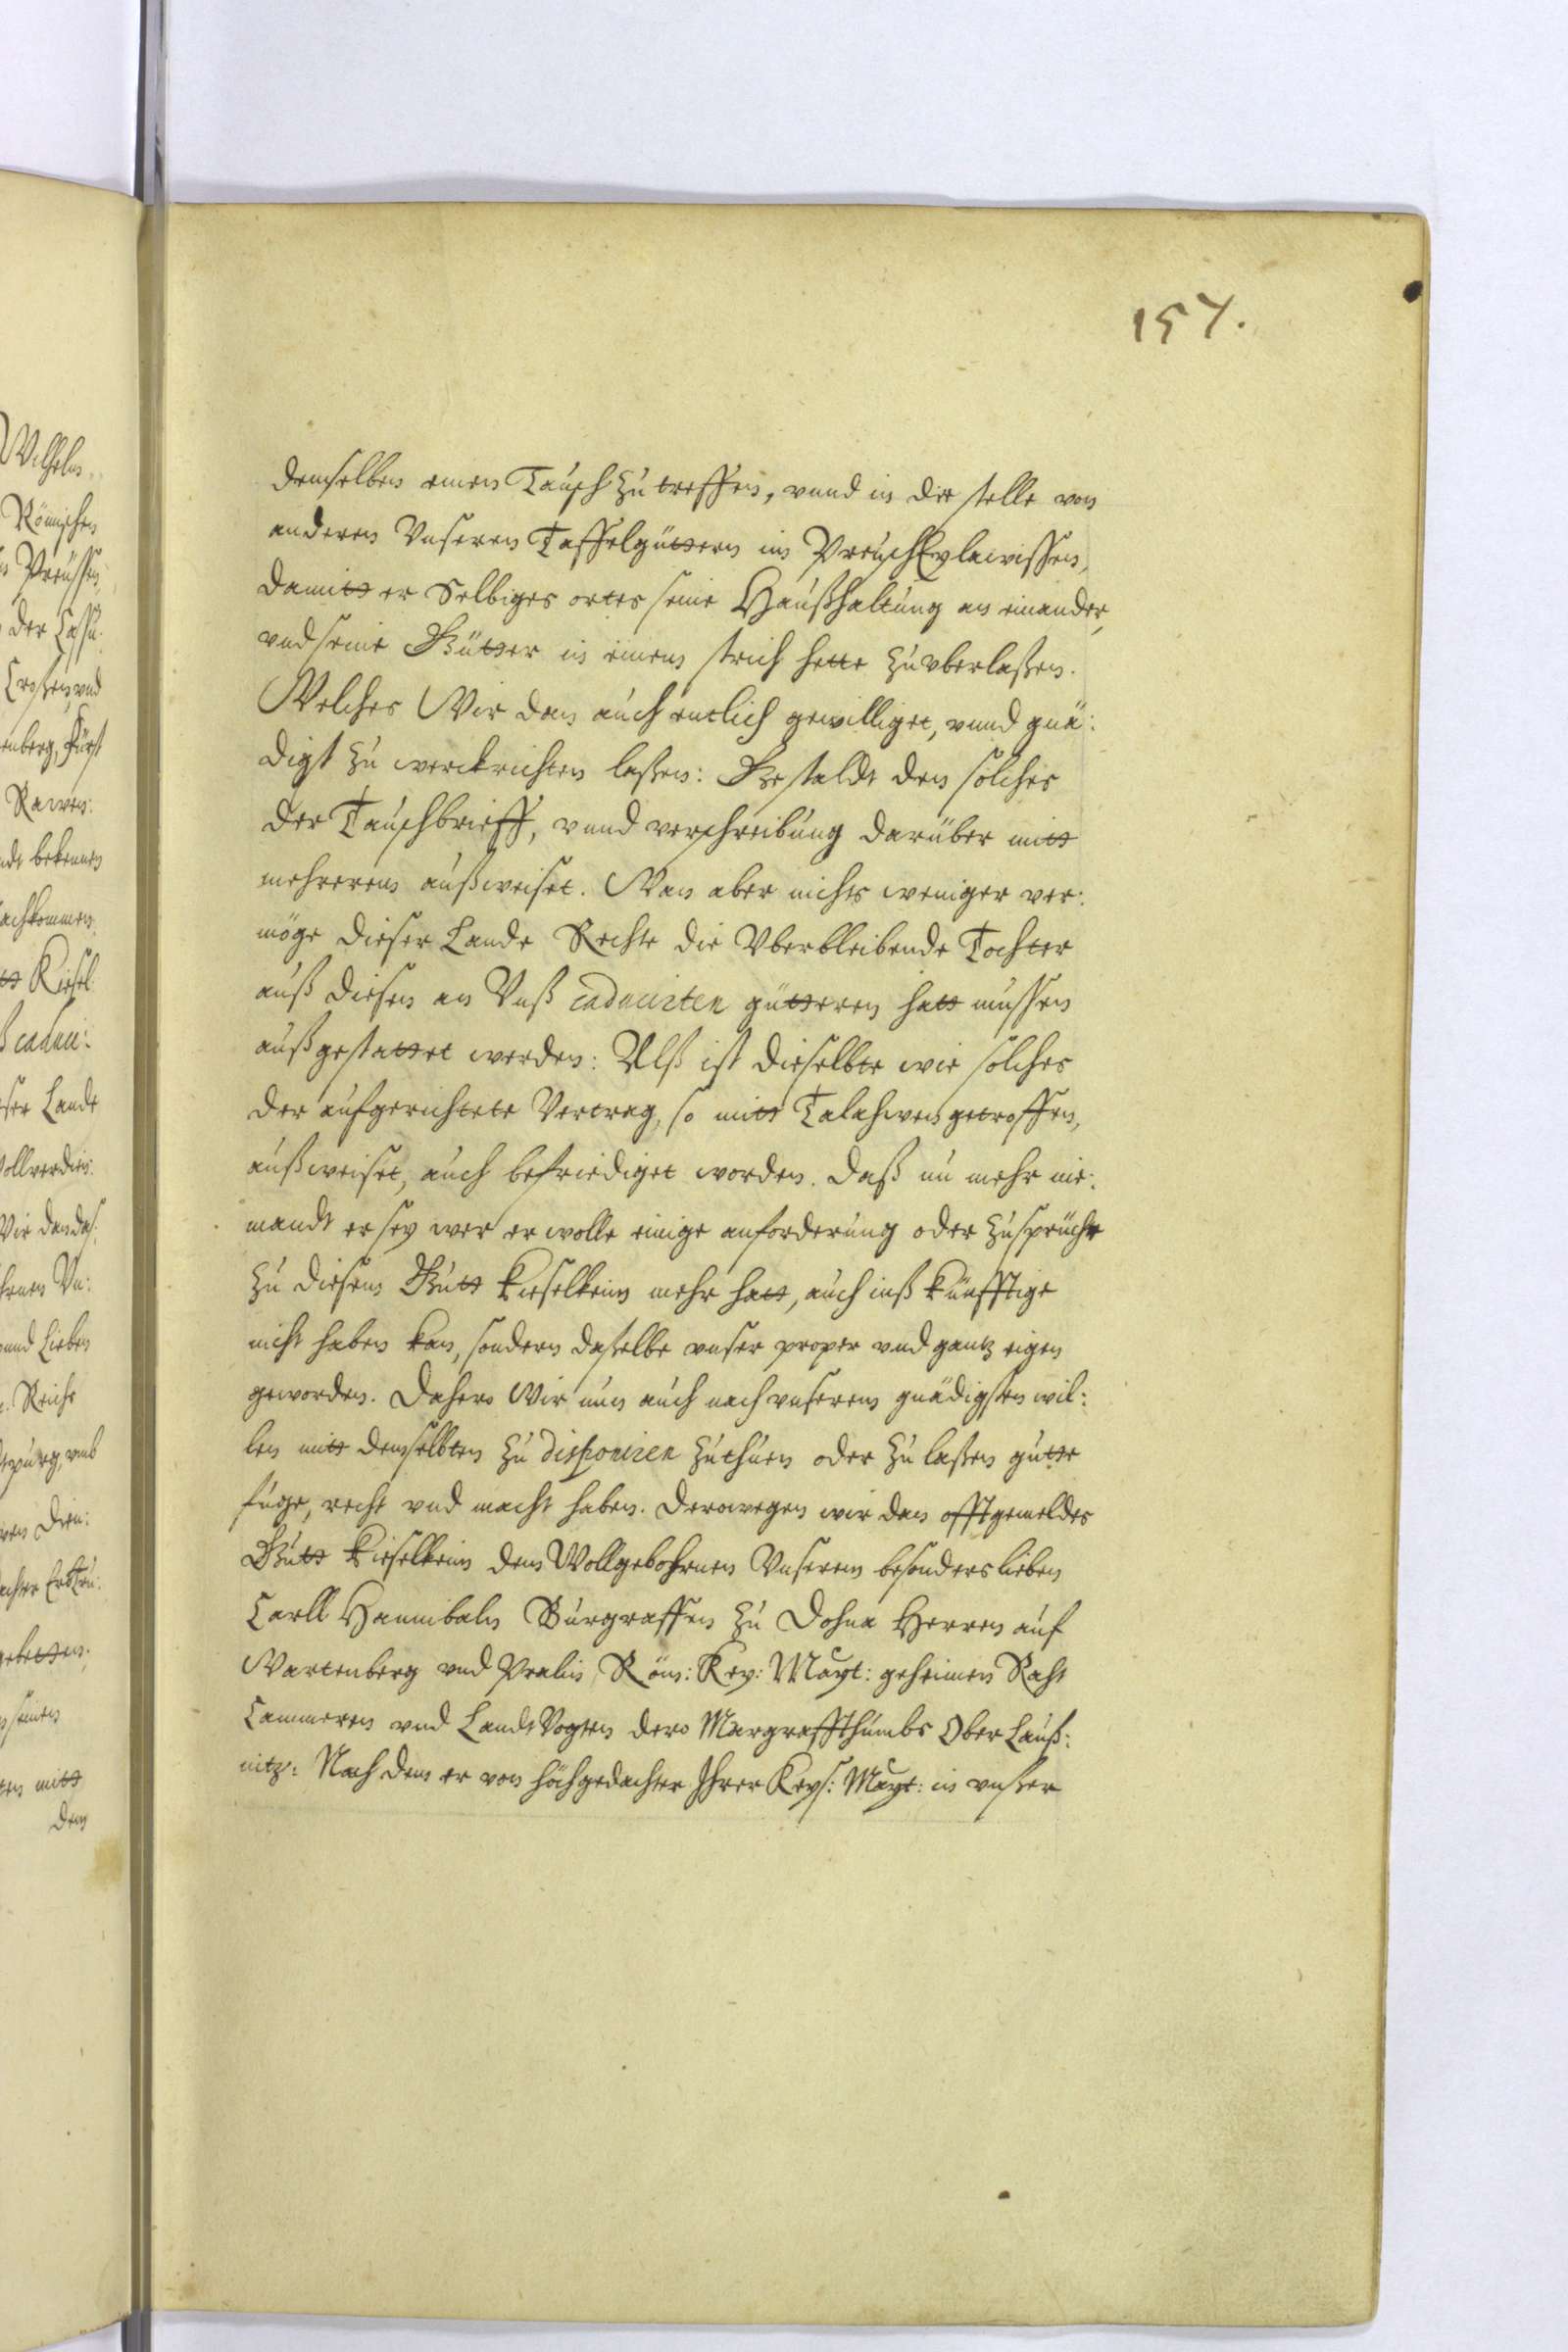 157.
demselben einen Tausch zu treffen, vnnd in die stelle von
anderen Vnseren Taffelgüttern im Preuscheylawischen,
damitt er Selbiges ortes seine Haußhaltung an einander,
vnd seine Gütter in einem strich hette zu vberlaßen.
Welches Wir dan auch entlich gewilliget, vnnd gnä:
digst zu werckrichten laßen: Gestaldt den solches
der Tauschbrieff, vnnd verschreibung darüber mitt
mehrerem außweiset. Wan aber nichts weniger ver:
möge dieser Lande Rechte die Vberbleibende Tochter
auß diesen an Vnß caducirten gütteren hatt mussen
außgestattet werden: Alß ist dieselbte wie solches
der aufgerichtete Vertrag, so mitt Talahwen getroffen,
außweiset, auch befriediget worden. Daß nu mehr nie:
mandt er sey wer er wolle einige anforderung oder zusprüche
zu diesem Gutt Kieselkeim mehr hatt, auch inß künfftige
nicht haben kan, sondern daßelbe vnser proper vnd gantz eigen
geworden. Dahero Wir nun auch nach vnserem gnädigsten wil:
len mitt demselbten zu disponiren zuthuen oder zu laßen gutte
fuge, recht vnd macht haben. Derowegen wir dan offtgemeldes
Gutt Kieselkeim dem Wollgebohrnen Vnserem besonders lieben
Carll Hannibaln Burgraffen zu Dohna Herren auf
Wartenberg vnd Pralin Röm: Key: Mayt: geheimen Raht
Cammeren vnd Landt Vogten dero Margraffthumbs Ober Lauß:
nitz: Nach dem er von höchgedachter Ihrer Keys: Mayt: in vnßer
Wilhelm
Römischen
Preüssen
der Caßu:
Croßen, vnd
enberg, Fürst
Raven:
ndt bekennen
achkommen
tt Kiesel
ß caduci:
ser Lande
ollverdien
Wir dan daß
hrnen Vn:
vnnd Lieben
Reichs
epurg, vmb
ren Dien:
achter
gebetten,
seinen
ten mitt
dem